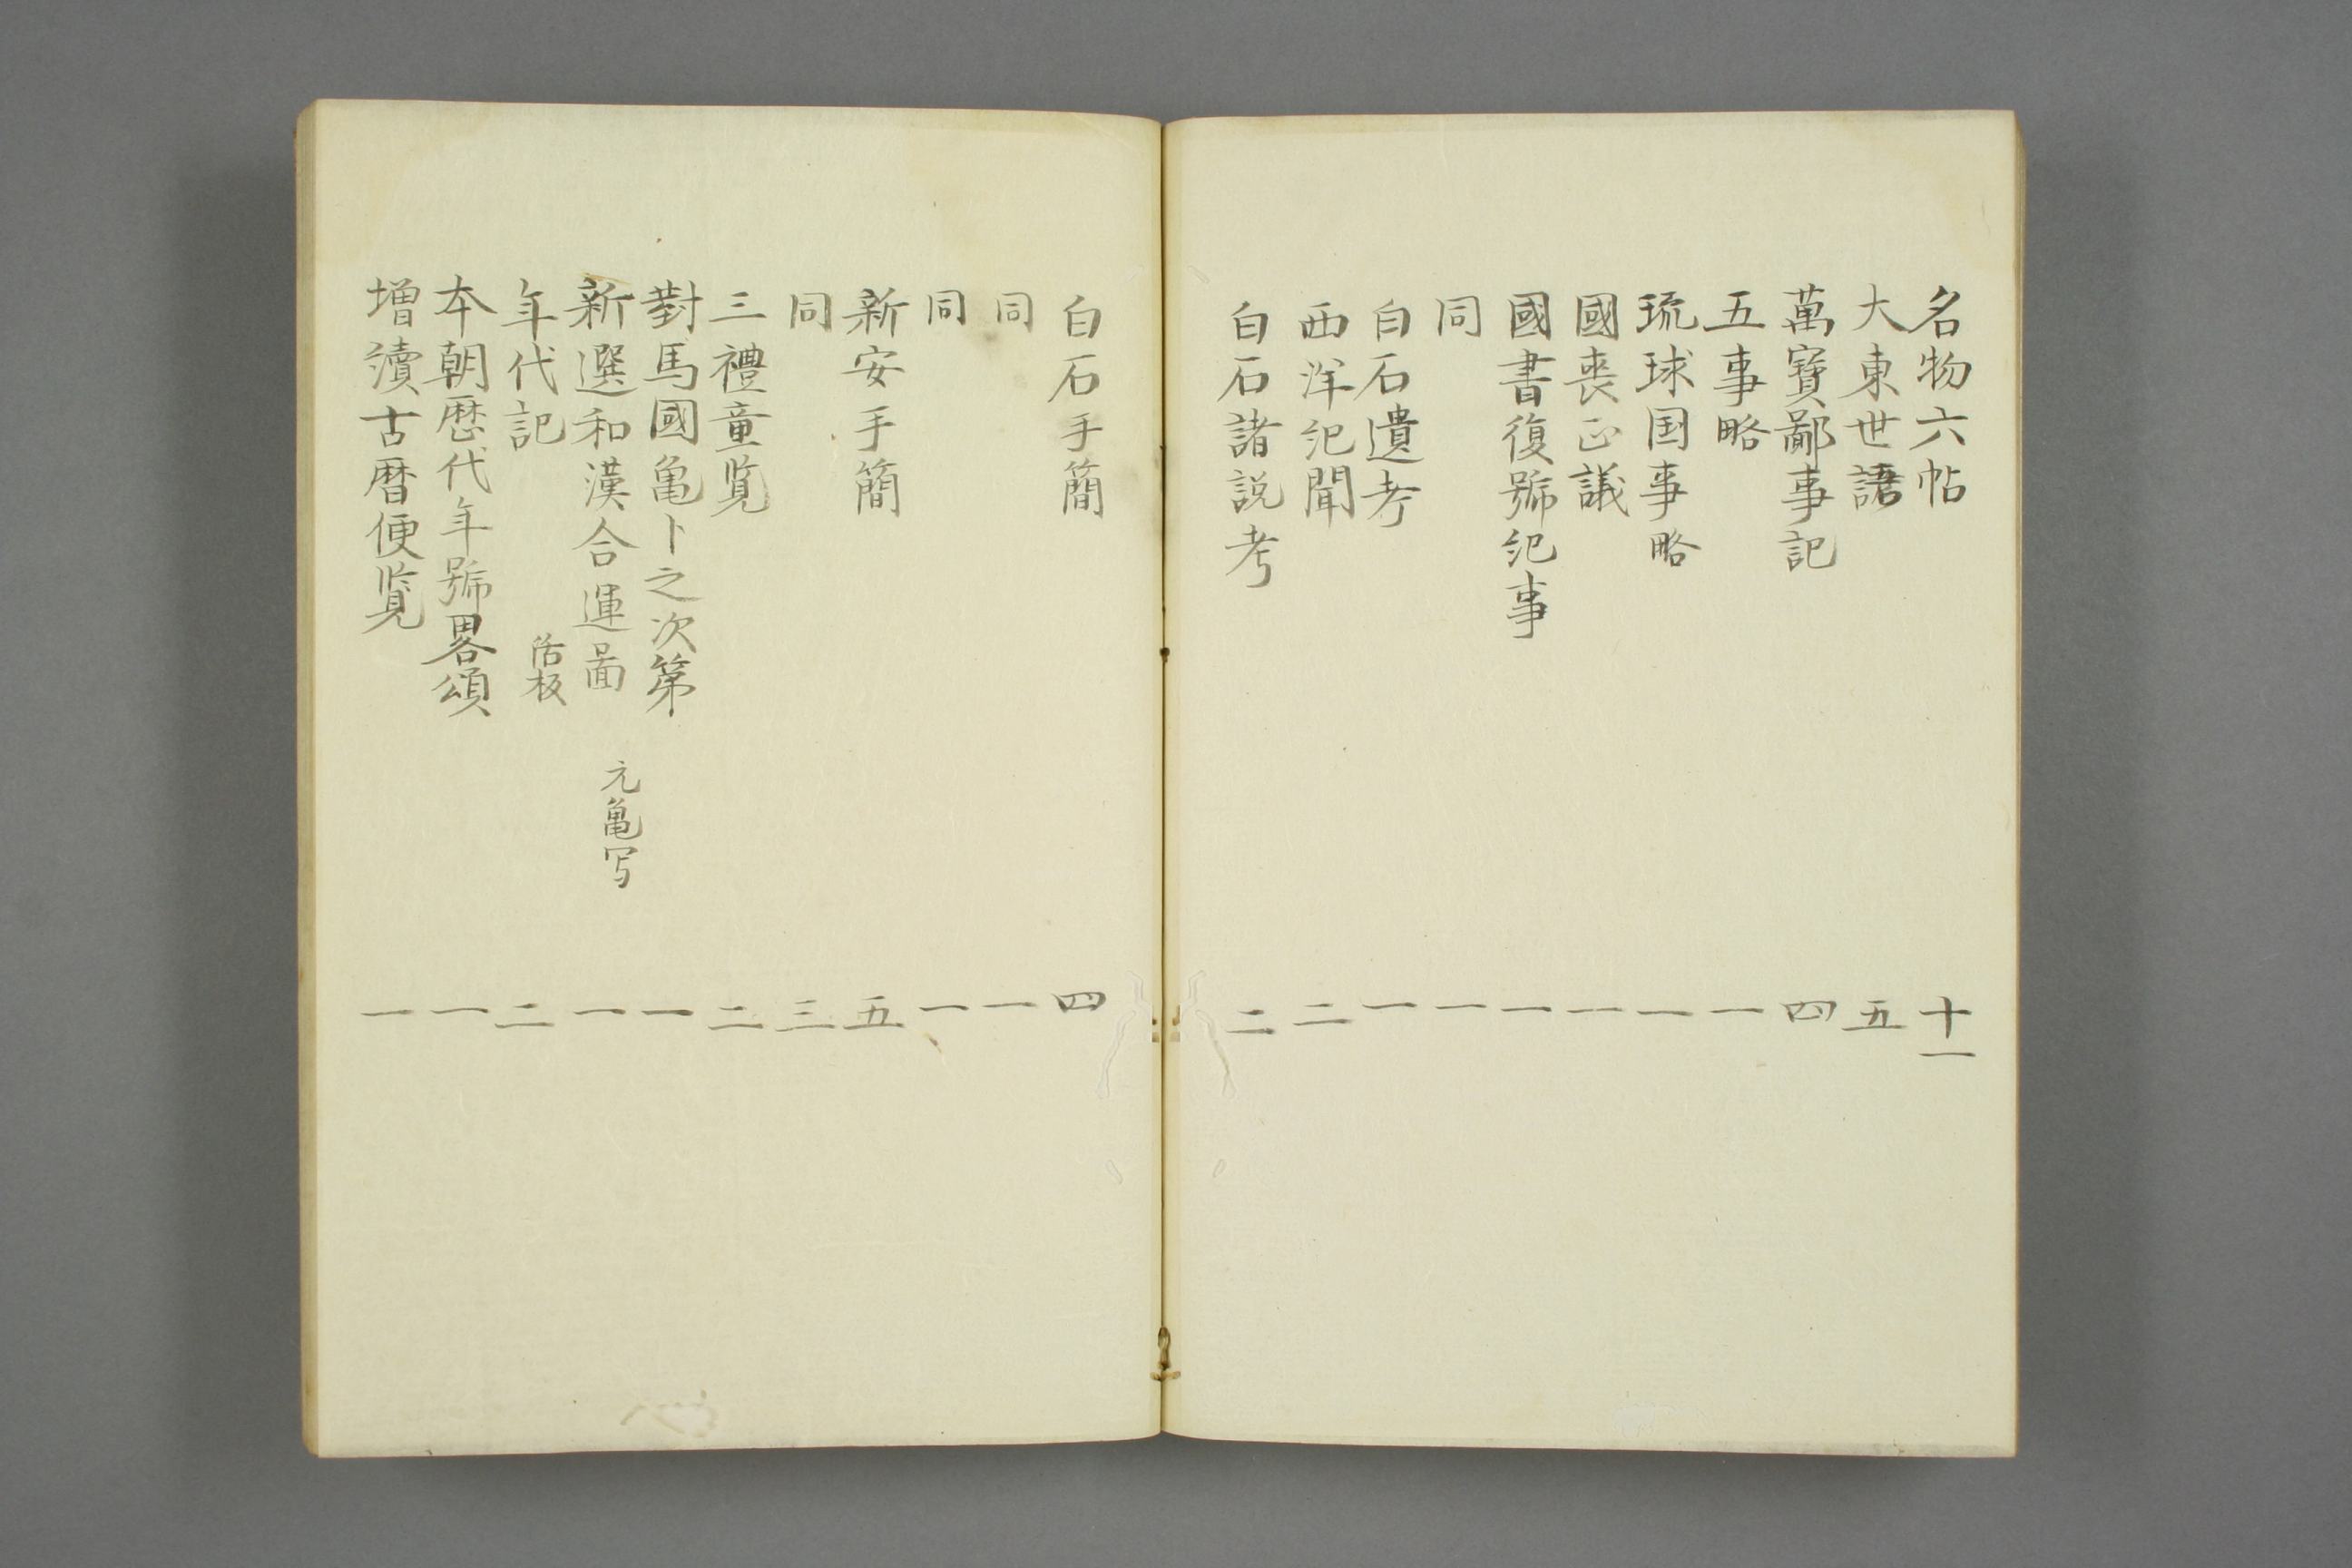 名物六帖 十一
大東世語 五
萬寶鄙事記 四
五事略 一
琉球国事略 一
國喪正議 一
國書復號紀事 一
同 一
白石遺考 一
西洋紀聞 二
白石諸説考 二
白石手簡 四
同 一
同 一
新安手簡 五
同 三
三禮童覧 二
對馬國亀卜之次第 一
新選和漢合運啚 元亀写 一
年代記 活板 二
本朝歴代年號畧頌 一
増續古暦便覧 一